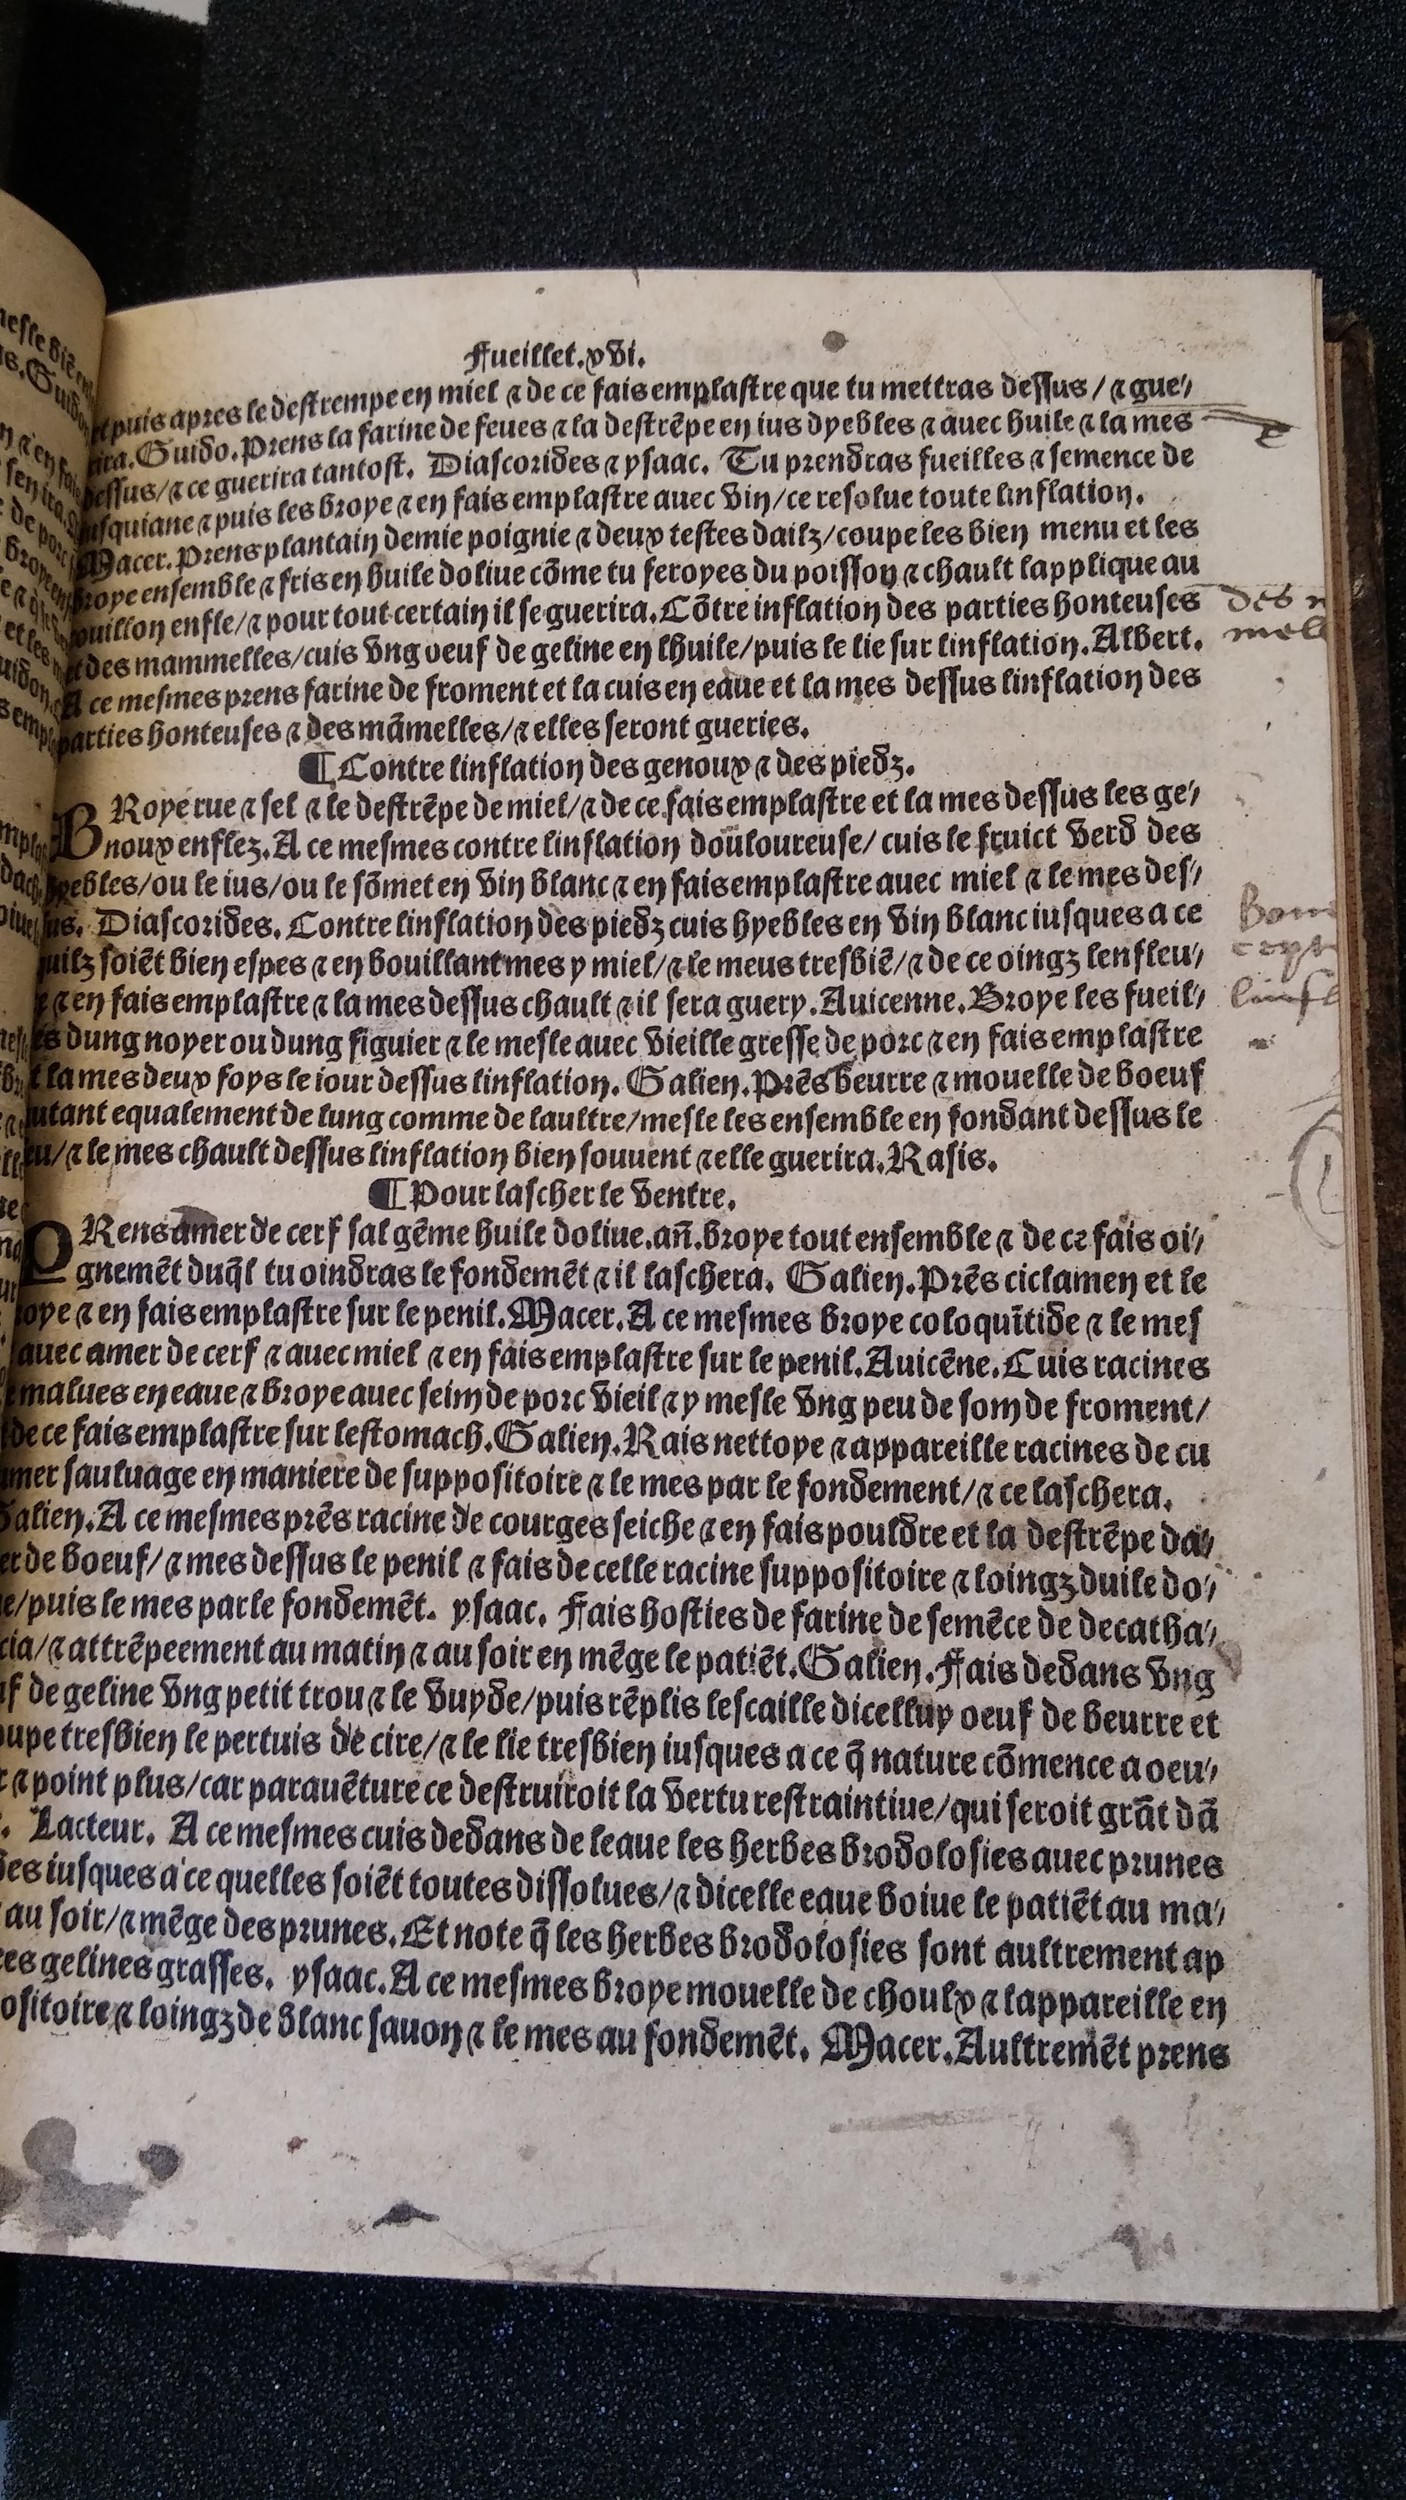 Fueillet.xvi.
puis apres le destrempe en miel ⁊ de ce fais emplastre que tu mettras dessus / ⁊ gue⸗
rira. Guido. Prens la farine de feues ⁊ la destrēpe en ius dyebles ⁊ auec huile ⁊ la mes
dessus/⁊ ce guerira tantost. Diascorides ⁊ ysaac. Tu prendras fueilles ⁊ semence de
iusquiane ⁊ puis les broye ⁊ en fais emplastre auec vin/ce resolue toute linflation.
Macer. Prens plantain demie poignie ⁊ deux testes dailz/coupe les bien menu et les
broye ensemble ⁊ fris en huile doliue cōme tu feroyes du poisson ⁊ chault lapplique au
couillon enfle/⁊ pour tout certain il se guerira. Cōtre inflation des parties honteuses
et des mammelles/cuis vng oeuf de geline en lhuile/puis le lie sur linflation. Albert.
A ce mesmes prens farine de froment et la cuis en eaue et la mes dessus linflation des
parties honteuses ⁊ des māmelles/⁊ elles seront gueries.
¶ Contre linflation des genoux ⁊ des piedz.
BRoye rue ⁊ sel ⁊ le destrēpe de miel/⁊ de ce fais emplastre et la mes dessus les ge⸗
noux enflez. A ce mesmes contre linflation douloureuse/ cuis le fruict verd des
hyebles/ou le ius/ou le sōmet en vin blanc ⁊ en fais emplastre auec miel ⁊ le mes des⸗
sus. Diascorides. Contre linflation des piedz cuis hyebles en vin blanc iusques a ce
quilz soiēt bien espes ⁊ en bouillant mes y miel/⁊ le meus tresbiē/⁊ de ce oingz lenfleu⸗
re ⁊ en fais emplastre ⁊ la mes dessus chault ⁊ il sera guery. Auicenne. Broye les fueil⸗
les dung noyer ou dung figuier ⁊ le mesle auec vieille gresse de porc ⁊ en fais emplastre
et la mes deux foys le iour dessus linflation. Galien. Prēs beurre ⁊ mouelle de boeuf
autant equalement de lung comme de laultre/mesle les ensemble en fondant dessus le
feu/⁊ le mes chault dessus linflation bien souuent ⁊ elle guerira. Rasis.
¶ Pour lascher le ventre.
PRens amer de cerf sal gēme huile doliue.añ.broye tout ensemble ⁊ de ce fais oi⸗
gnemēt duq̄l tu oindras le fondemēt ⁊ il laschera. Galien. Prēs ciclamen et le
broye ⁊ en fais emplastre sur le penil. Macer. A ce mesmes broye coloquītide ⁊ le mes
auec amer de cerf ⁊ auec miel ⁊ en fais emplastre sur le penil. Auicēne. Cuis racines
malues en eaue ⁊ broye auec sein de porc vieil ⁊ y mesle vng peu de son de froment/
de ce fais emplastre sur lestomach. Galien. Rais nettoye ⁊ appareille racines de cu
mer sauluage en maniere de suppositoire ⁊ le mes par le fondement/⁊ ce laschera.
Galien. A ce mesmes prēs racine de courges seiche ⁊ en fais pouldre et la destrēpe da⸗
er de boeuf/⁊ mes dessus le penil ⁊ fais de celle racine suppositoire ⁊ loingz duile do⸗
e/puis le mes par le fondemēt. ysaac. Fais hosties de farine de semēce de decatha⸗
cia/⁊ attrēpeement au matin ⁊ au soir en mēge le patiēt. Galien. Fais dedans vng
f de geline vng petit trou ⁊ le vuyde/puis rēplis lescaille dicelluy oeuf de beurre et
oupe tresbien le pertuis de cire/⁊ le lie tresbien iusques a ce q̄ nature cōmence a oeu⸗
r ⁊ point plus/car parauēture ce destruiroit la vertu restraintiue/qui seroit grāt dā
. Lacteur. A ce mesmes cuis dedans de leaue les herbes brodolosies auec prunes
des iusques a ce quelles soiēt toutes dissolues/⁊ dicelle eaue boiue le patiēt au ma⸗
au soir/⁊ mēge des prunes. Et note q̄ les herbes brodolosies sont aultrement ap
es gelines grasses. ysaac. A ce mesmes broye mouelle de choulx ⁊ lappareille en
ositoire ⁊ loingz de blanc sauon ⁊ le mes au fondemēt. Macer. Aultremēt prens
des
linfl